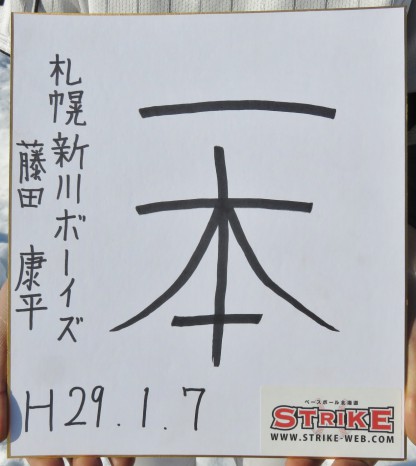 一本
札幌新川ボーイズ
藤田 康平
H29.1.7
ベースボール北海道
STRIKE
WWW.STRIKE-WEB.COM